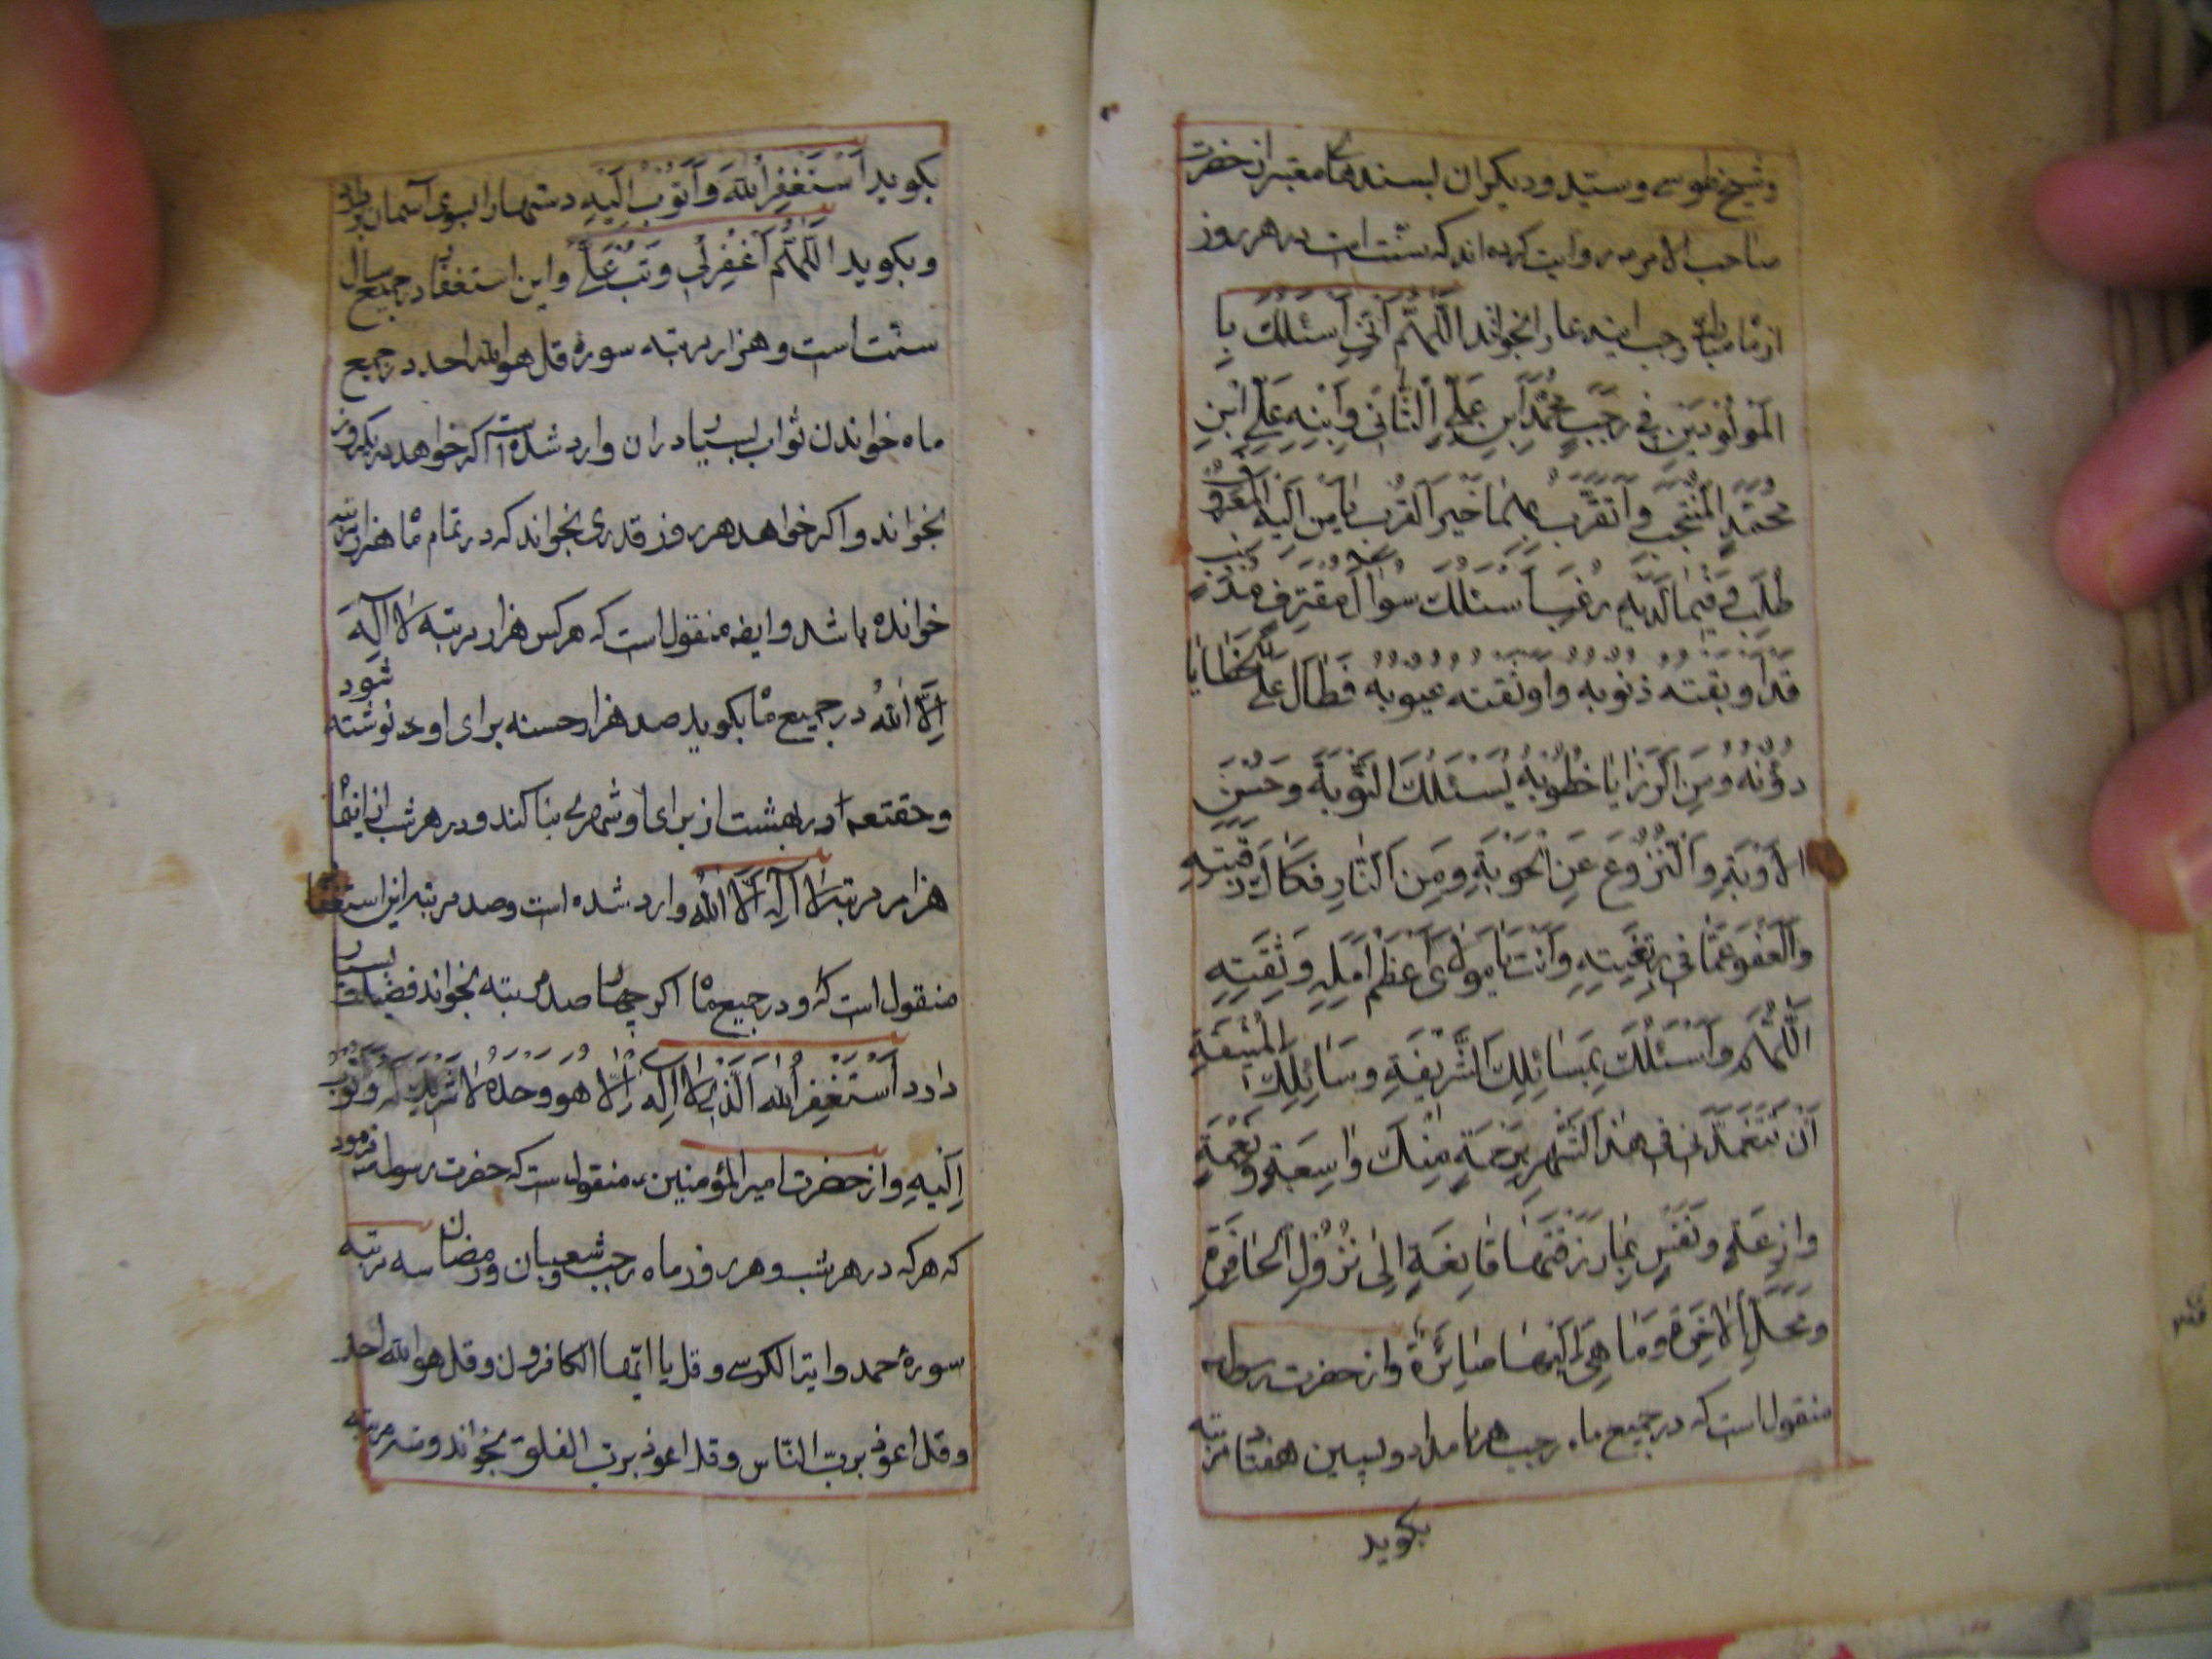 وشیخ طوسی وسید ودیکران بسندهای معتبر از حضرت
صاحب الامر ۴ روایت کرده اند که سنت است در هر روز
از ماه مبارک رجب این دعا را بخواند اَللّٰهُمَّ اِنّی اَسْئَلُكَ بِا
الْمَوْلُودَیْنِ فی رَجَبٍ مُحَمَّدِ ابْنِ عَلِیٍّ الثّانی وَابْنِهِ عَلِیِّ ابْنِ
مُحَمَّدٍ الْمُنْتَجَبِ وَاَتَقَرَّبُ بِهِمٰا خَیْرَ الْقُرَبِ یٰا مَنْ اِلَیْهِ الْمَعْرُوفُ
طُلِبَ وَفیمٰا لَدَیْهِ رُغِبَ اَسْئَلُكَ سُؤالَ مُقْتَرِفٍ مُذْنِبٍ
قَدْ اَوْبَقَتْهُ ذُنُوبُهُ وَاَوْثَقَتْهُ عُیُوبُهُ فَطٰالَ عَلَی الْخَطٰایٰا
دُؤُبُهُ وَمِنَ الرَّزٰایٰا خُطُوبُهُ یَسْئَلُكَ التَّوْبَةَ وَحُسْنَ
الْاَوْبَةِ وَالنُّزُوعَ عَنِ الْحَوْبَةِ وَمِنَ النّٰارِ فَکٰاكَ رَقَبَتِهِ
وَالْعَفْوَ عَمّٰا فی رِبْقَتِهِ وَاَنْتَ یٰا مَوْلایَ اَعْظَمُ اَمَلِهِ وَثِقَتِهِ
اَللّٰهُمَّ وَاَسْئَلُكَ بِمَسٰائِلِكَ الشَّریفَةِ وَسٰائِلِكَ الْمُنیفَةِ
اَنْ تَتَغَمَّدَنی فی هٰذَا الشَّهْرِ بِرَحْمَةٍ مِنْكَ وٰاسِعَةٍ وَنِعْمَةٍ
وٰازِعَةٍ وَنَفْسٍ بِمٰا رَزَقْتَهٰا قٰانِعَةٍ اِلیٰ نُزُولِ الْحٰافِرَةِ
وَمَحَلِّ الْاٰخِرَةِ وَمٰا هِیَ اِلَیْهٰا صٰائِرَةٌ واز حضرت رسول ص
منقول است که در جمیع ماه رجب هر بامداد وپسین هفتاد مرتبه
بکوید
بکوید اَسْتَغْفِرُ اللّٰهَ وَاَتُوبُ اِلَیْهِ دستها را بسوی آسمان بردارد
وبکوید اَللّٰهُمَّ اغْفِرْلی وَتُبْ عَلَیَّ واین استغفار در جمیع سال
سنت است وهزار مرتبه سورۀ قل هو الله احد در جمیع
ماه خواندن ثواب بسیار دران وارد شده است اکر خواهد در یکروز
بخواند واکر خواهد هر روز قدری بخواند که در تمام ماه هزار مرتبه
خوانده باشد وایضه منقول است که هر کس هزار مرتبه لٰا اِلٰهَ
اِلَّا اللّٰهُ در جمیع ماه بکوید صد هزار حسنه برای او نوشته شود
وحقتعه در بهشت از برای او شهری بنا کند ودر هر شب از اینماه
هزار مرتبه لٰا اِلٰهَ اِلَّا اللّٰهُ وارد شده است وصد مرتبه این استغفار
منقول است که ودر جمیع ماه اکر چهار صد مرتبه بخواند فضیلت بسیار
دارد اَسْتَغْفِرُ اللّٰهَ الَّذی لٰا اِلٰهَ اِلّٰا هُوَ وَحْدَهُ لٰا شَریكَ لَهُ وَاَتُوبُ
اِلَیْهِ واز حضرت امیر المؤمنین ۴ منقول است که حضرت رسول ص فرمود
که هر که در هر شب وهر روز ماه رجب وشعبان ورمضان سه مرتبه
سورۀ حمد وایة الکرسی وقل یا ایّها الکافرون وقل هو الله احد
وقل اعوذ بربّ النّاس وقل اعوذ بربّ الفلق بخواند وسه مرتبه